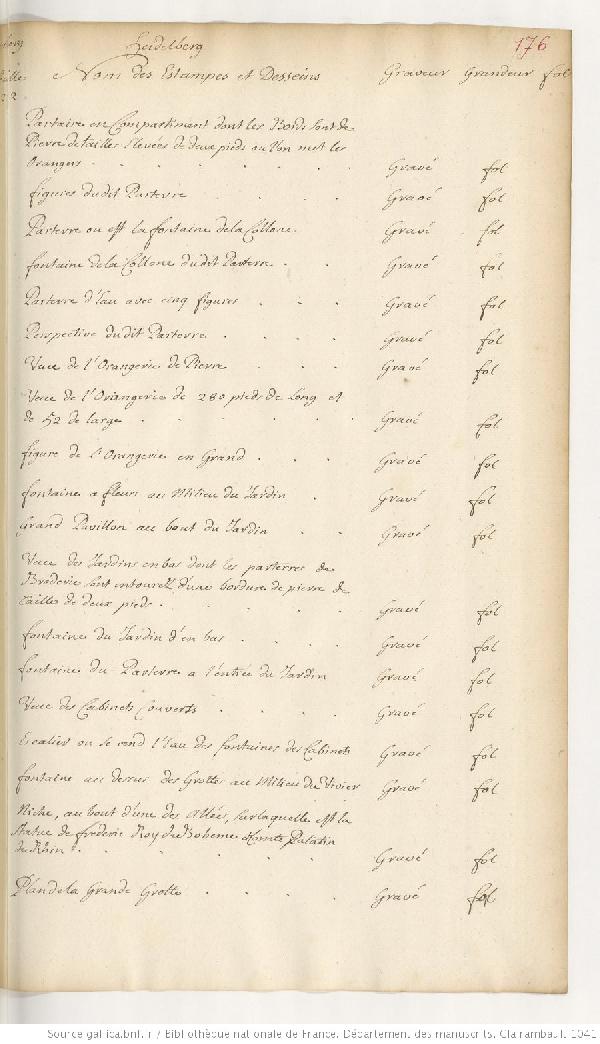 Heidelberg 176
Noms des Estampes et Desseins Graveur Grandeur fol
Partaire en Compartiment dont les Bords sont de
Pierre de tailles Elevées de deux pieds ou l'on met les
Orangers Gravé fol
figures dudit Parterre Gravé fol
Parterre ou est la fontaine de la Collone Gravé fol
fontaine de la Collone dudit Parterre Gravé fol
Parterre d'Eau avec cinq figures Gravé fol
Perspective dudit Parterre Gravé fol
Veue de l'Orangerie de Pierre Gravé fol
Veue de l'Oriangerie de 280 pieds de Long et
de 52 de large Gravé fol
figure de l'Orangerie en Grand Gravé fol
fontaine a fleurs au Milieu du Jardin Gravé fol
Grand Pavillon au bout du Jardin Gravé fol
Veue des Jardins en bas dont les parterres de
Broderie sont entourez d'une bordure de pierre de
tailles de deux pieds Gravé fol
fontaine du Jardin d'en bas Gravé fol
fontaine du Parterre a l'entrée du Jardin Gravé fol
Veue des Cabinets Couverts Gravé fol
Escalier ou se rend l'Eau des fontaines des Cabinets Gravé fol
fontaine au dessus des Grottes au Milieu du Vivier Gravé fol
Niche, au bout d'une des Allée, sur laquelle est la
Statue de frederic Roy de Boheme Comte Palatin
du Rhin Gravé fol
Plan de la Grande Grotte Gravé fol
Source gallica.bnf.fr / Bibliothèque nationale de France. Département des manuscrits. Clairambault 1041